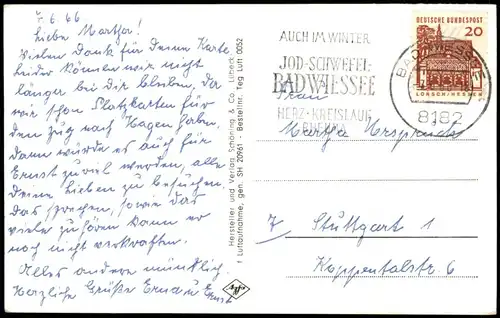 7.6.66
Liebe Martha!
Vielen Dank für Deine Karte
leider können wir nicht
länger bei Dir bleiben, da
wir schon Platzkarten für
den Zug nach Hagen haben.
Dann würde es auch für
Ernst zuviel werden, alle
Deine Lieben zu besuchen.
Das sprechen, sowie das
viele zuhören kann er
noch nicht verkraften.
Alles andere mündlich.
Herzliche Grüße Erna u Ernst
Hersteller und Verlag Schöning & Co., Lübeck
† Luftaufnahme, gen. SH 20961 - Bestellnr. Teg Luft 0052
Agfa
AUCH IM WINTER
JOD-SCHWEFEL-
BAD WIESSEE
HERZ-KREISLAUF
BAD WIESSEE
8182
DEUTSCHE BUNDESPOST
20
LORSCH/HESSEN
Frau
Martha
Stuttgart 1
Koppentalstr. 6